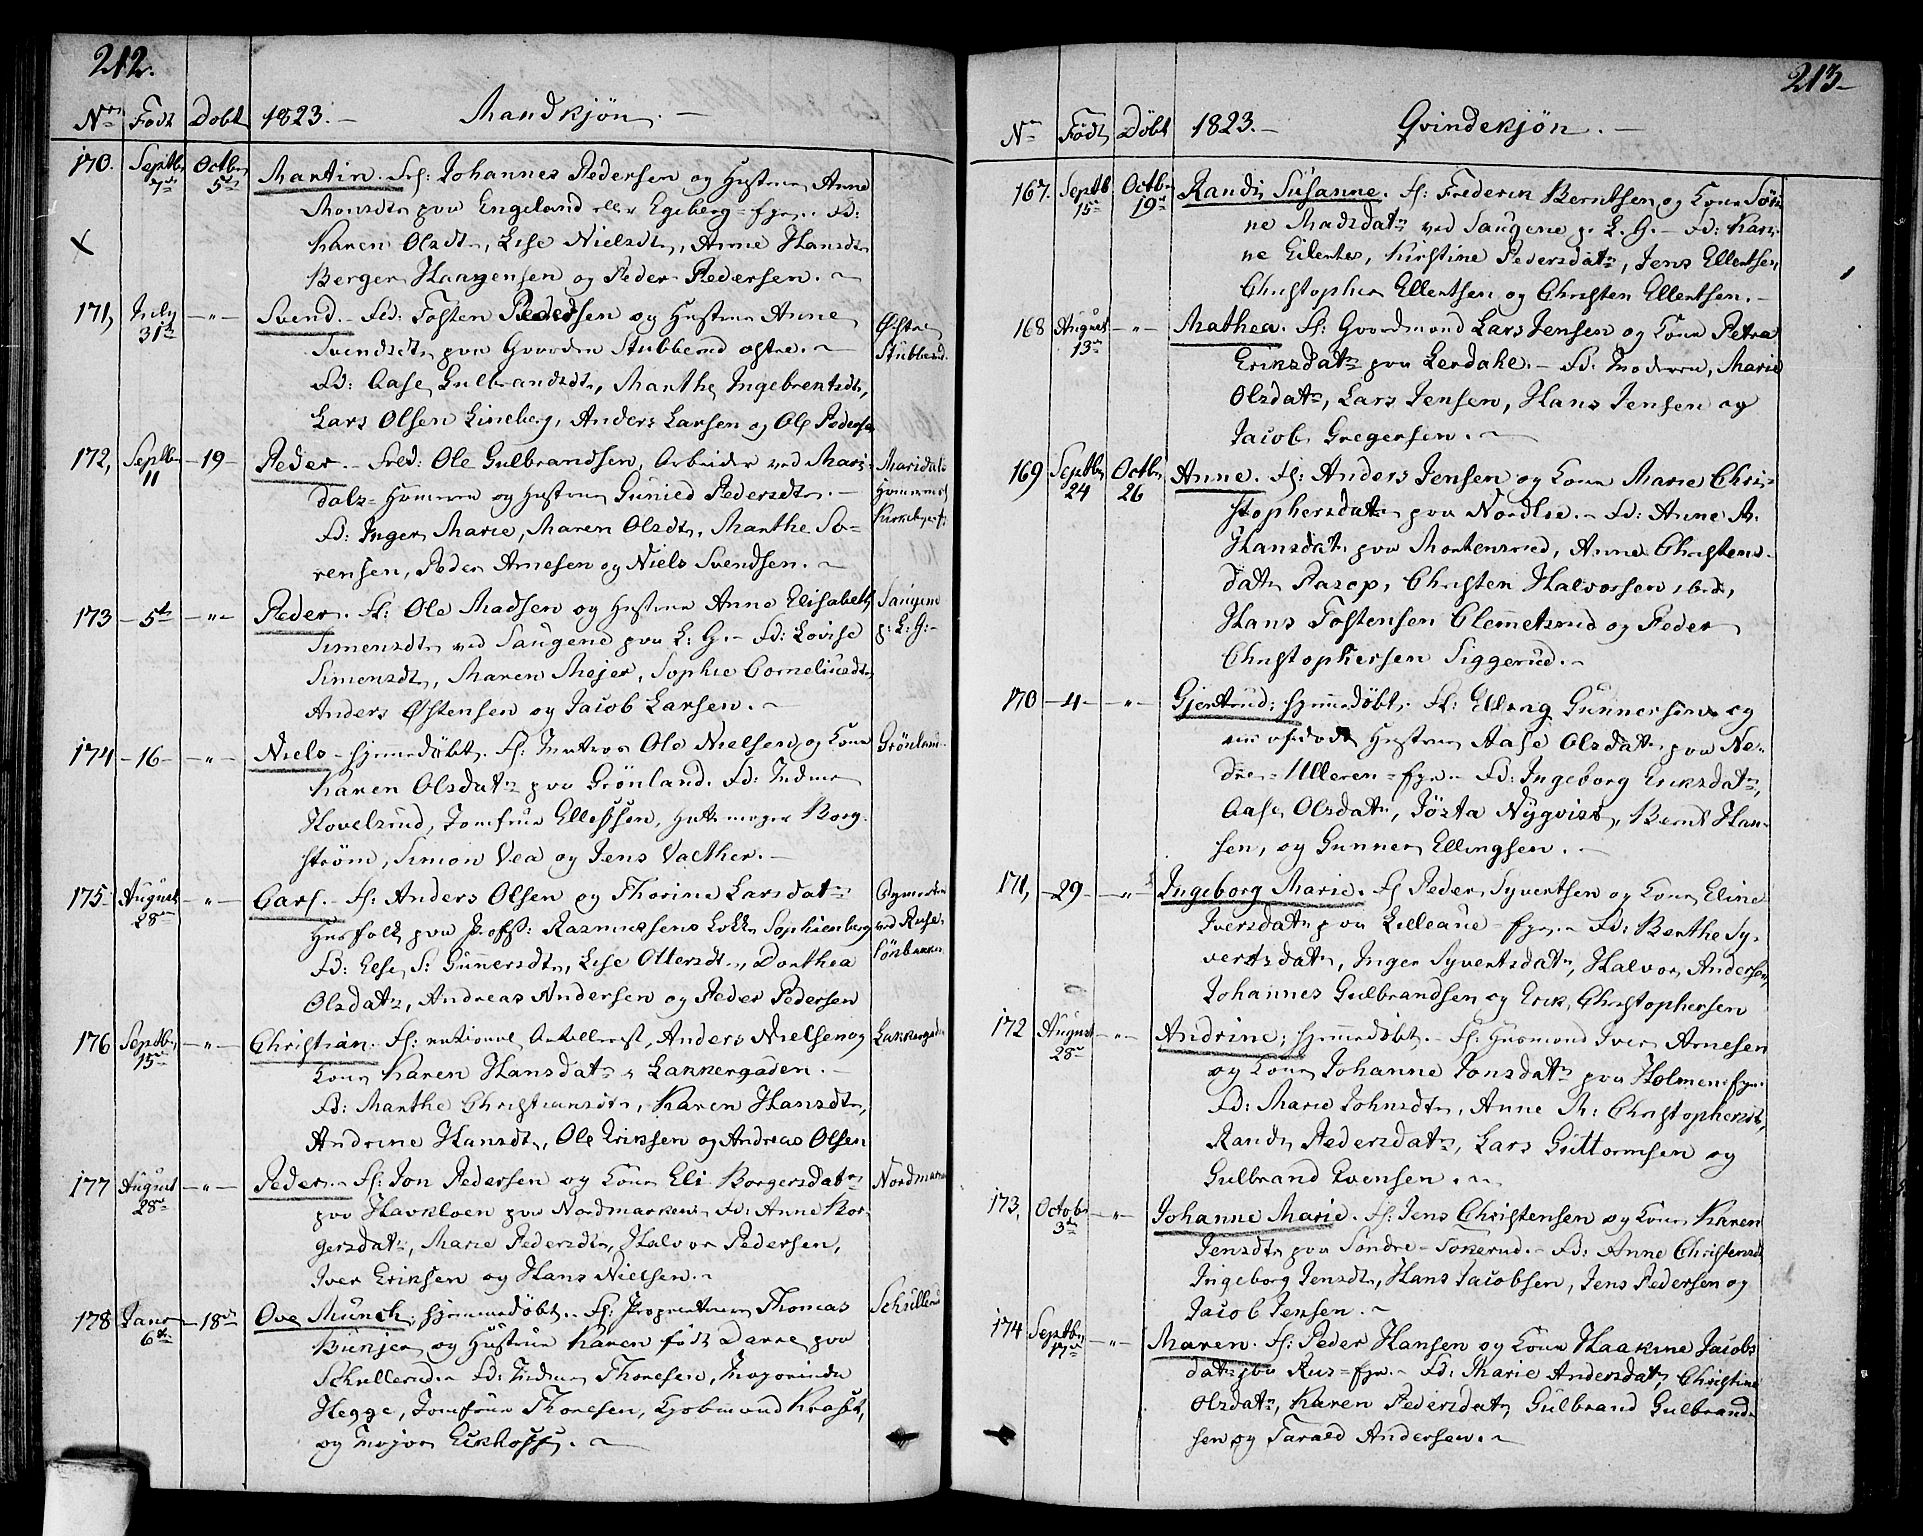 212.
No Födt Döbt 1823. - Mandkjøn. -
170. Septbr 7de Octbr 5te Martin. Frf: Johannes Pedersen og Hustrue Anne
Monsdtr paa Engeland eller Egeberg = Fd:
Karen Olsdtr, Lise Nielsdtr, Anne Hansdtr
Berger Haagensen og Peder Pedersen.
171, July 31te -"- Svend. - Fd: Tosten Pedersen og Hustrue Anne Østre
Svendsdtr paa Gaarden Stubberud østre. - Stubberud.
Fd: Aase Gulbrandsdtr, Marthe Ingebretsdtr,
Lars Olsen Lineberg, Anders Larsen og Ole Pedersen
172, Septbr 11 -19- Peder. - Ole Gulbrandsen, Arbeider ved Mari- Maridals
dals= Hammeren og Hustrue Gunied Pedersdtr. - Hammeren
Fd: Inger Marie, Maren Olsdtr, Marthe So-
rensen, Peder Arnesen og Niels Svendsen.
173 -5te -"- Peder. F: Ole Madsen og Hustrue Anne Elisabeth Saugene
Simensdtr ved Saugene paa L: G. - Fd: Lovise p: L: G: -
Simensdtr, Maren Mejer, Sophie Corneliusdtr,
Anders Østensen og Jacob Larsen.
174 -16- -"- Niels - hjemmedöbt. F: Matros Ole Nielsen og Kone Grönland.
Karen Olsdatr paa Grönland. Fd: Madme
Hovelsrud, Jomfrue Ellefsen, Hattemager Borg-
ström, Simon Vea og Jens Valther. -
175 August 28de -"- Carl. - F: Anders Olsen og Thorine Larsdatr
Huusfolk paa Proffs: Rasmussens Løkke Sophienberg
Fd: Else S: Gunnersdtr, Lise Ottersdtr, Dorthea
Olsdatr, Andreas Andersen og Peder Pedersen
176 Septbr 15de -"- Christian. F: national Artillerist, Anders Nielsen og Lakkergaden
Kone Karen Hansdatr i Lakkergaden. -
Fd: Marthe Christiansdtr, Karen Hansdtr,
Andrine Hansdtr, Ole Eriksen og Andreas Olsen
177 August 28de -"- Peder. - F: Jon Pedersen og Kone Eli Borgersdatr Nordmarken
paa Hakkloen paa Nordmarken. Fd: Anne Bor-
gersdatr, Marie Pedersdtr, Halvor Pedersen,
Iver Eriksen og Hans Nielsen.
178 Janr 6te -18de Ove Munch, hjemmedöbt. F: Proprietair Thomas Schullerud
Bunjer og Hustrue Karen föd Darre paa
Schullerud. Fd: Madme Thoresen, Majorinde
Hegge, Jomfrue Thoresen, Kjøbmand Kraft,
og Major Eckhoff.
213
No Födt Döbt 1823. - Qvindekjön. -
167. Septbr 15de Octbr 19de Randi Susanne. F: Frederik Berntsen og Kone Sör-
ne Madsdatr ved Saugene p. L. G. - Fd: Kari-
ne Eilertes, Kirstine Pedersdatr, Jens Ellertsen,
Christopher Ellertsen og Christen Ellertsen. -
168 August 13de -"- Mathea. F: Gaardmand Lars Jensen og Kone Petra
Eriksdatr paa Lerdahl. - Fd. Moderen, Marie
Olsdatr, Lars Jensen, Hans Jensen og
Jacob Gregersen.
169 Septbr 24 Octbr 26 Anne. F: Anders Jensen og Kone Marie Chri-
stophersdatr paa Nordlie. - Fd: Anne M.
Hansdatr paa Mortensrud, Anne Christens-
datr Parop, Christen Halvorsen ibd.,
Hans Tostensen Clemmetsrud og Peder
Christophersen Siggerud.
170 -4- -"- Gjertrud; hjemmedöbt. F: Elling Gunnersen og
Hustrue Aase Olsdatr paa Ne-
dre=Ulleren = Fd: Ingeborg Eriksdatr,
Aase Olsdatr, Josta Nÿgvist, Bernt Han-
sen, og Gunner Ellingsen. -
171, -29- -"- Ingeborg Marie. F: Peder Syvertsen og Kone Eline
Iversdatr paa Lilleaue Fd: Berthe Sy-
vertsdatr, Inger Syvertsdatr, Halvor Andersen,
Johannes Gulbrandsen og Erik Christophersen
172 August 28de -"- Andrine; hjemmedöbt. - F: Huusmand Iver Arnesen
og Kone Johanne Jonsdatr paa Holmen
Fd: Marie Johnsdtr, Anne M: Christophersdtr,
Randi Pedersdatr, Lars Guttormsen og
Gulbrand Evensen.
173, Octobr 3de -"- Johanne Marie. F: Jens Christensen og Kone Karen
Jensdtr paa Söndre-Tokerud. - Fd: Anne Christensdtr
Ingeborg Jensdtr, Hans Jacobsen, Jens Pedersen og
Jacob Jensen.
174 Septbr 17de -"- Maren. F: Peder Hansen og Kone Haakine Jacobs
datr paa Rus= Fd: Marie Andersdatr, Christine
Olsdatr, Karen Pedersdatr, Gulbrand Gulbrand-
sen og Tarald Andersen.